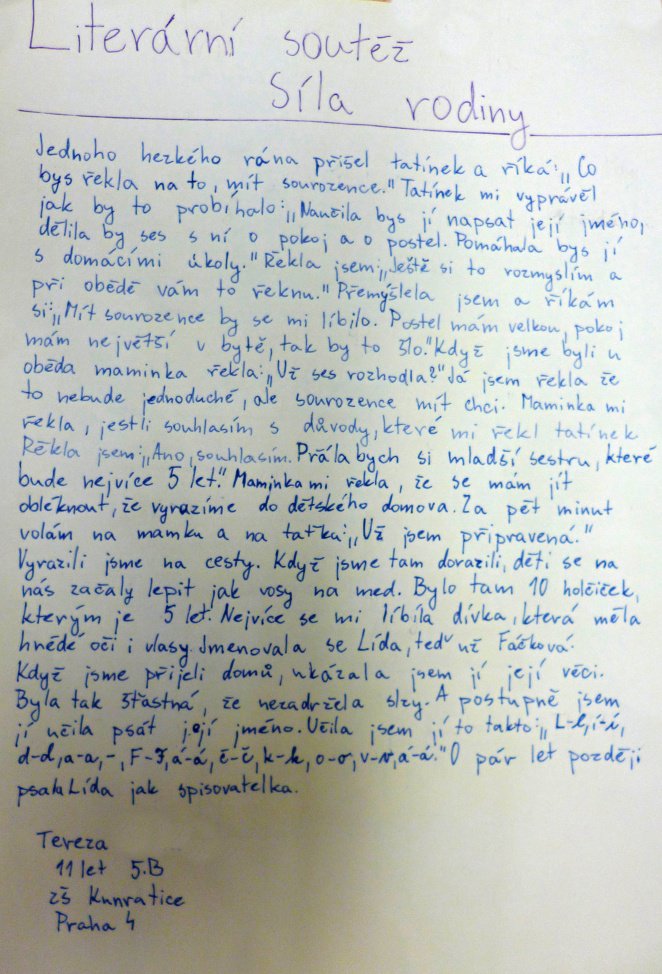 Literární soutěž
Síla rodiny
Jednoho hezkého rána přišel tatínek a říká: „Co
bys řekla na to, mít sourozence." Tatínek mi vyprávěl
jak by to probíhalo: „Naučila bys jí napsat její jméno,
dělila by ses s ní o pokoj a o postel. Pomáhala bys jí
s domácími úkoly." Řekla jsem: „Ještě si to rozmyslím a
při obědě vám to řeknu." Přemýšlela jsem a říkám
si: „Mít sourozence by se mi líbilo. Postel mám velkou, pokoj
mám největší v bytě, tak by to šlo." Když jsme byli u
oběda maminka řekla: „Už ses rozhodla?" Já jsem řekla že
to nebude jednoduché, ale sourozence mít chci. Maminka mi
řekla, jestli souhlasím s důvody, které mi řekl tatínek
Řekla jsem: „Ano, souhlasím. Přála bych si mladší sestru, které
bude nejvíce 5 let." Maminka mi řekla, že se mám jít
obléknout, že vyrazíme do dětského domova. Za pět minut
volám na mamku a na taťku: „Už jsem připravená."
Vyrazili jsme na cesty. Když jsme tam dorazili, děti se na
nás začaly lepit jak vosy na med. Bylo tam 10 holčiček,
kterým je 5 let. Nejvíce se mi líbila dívka, která měla
hnědé oči i vlasy. Jmenovala se Lída, teď už Fáčková.
Když jsme přijeli domů, ukázala jsem jí její věci.
Byla tak šťastná, že nezadržela slzy. A postupně jsem
jí učila psát její jméno. Učila jsem jí to takto: „L-l, í-í,
d-d, a-a, -, F-F, á-á, č-č, k-k, o-o, v-v, á-á." O pár let později
psala Lída jak spisovatelka.
Tereza
11 let 5.B
ZŠ Kunratice
Praha 4